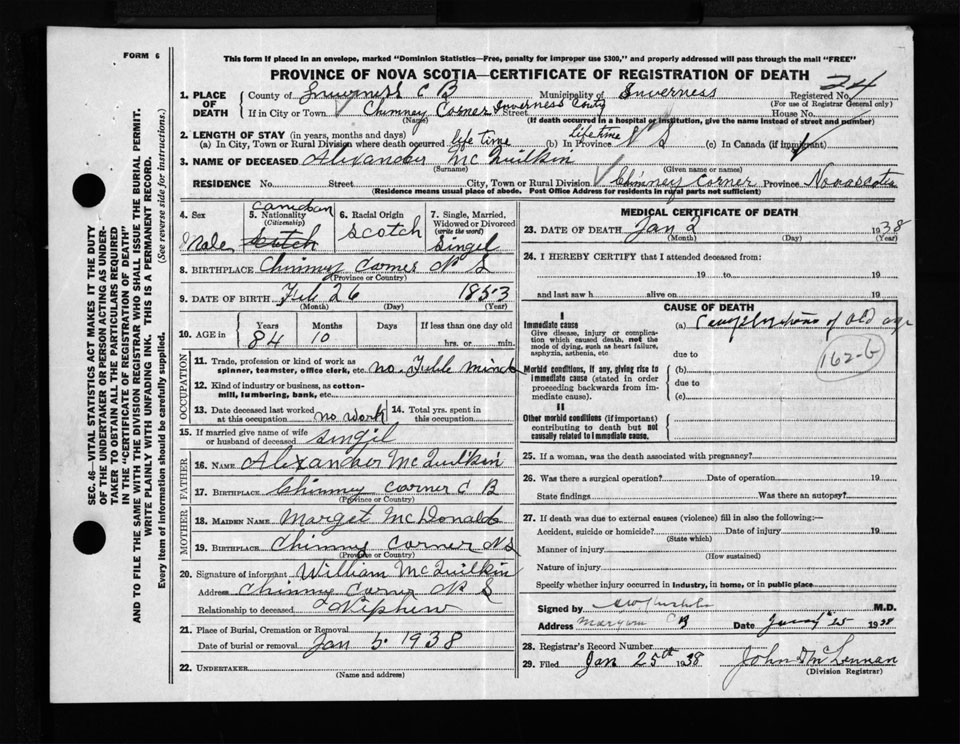 FORM 6
This form if placed in an envelope, marked "Dominion Statistics—Free, penalty for improper use $300," and properly addressed will pass through the mail "FREE"
PROVINCE OF NOVA SCOTIA—CERTIFICATE OF REGISTRATION OF DEATH
24
1. PLACE OF DEATH County of Inverness C B Municipality of Inverness Registered No.
(For use of Registrar General only)
If in City or Town Chimney Corner Inverness County Street House No.
(Name) (If death occurred in a hospital or institution, give the name instead of street and number)
2. LENGTH OF STAY (in years, months and days)
(a) In City, Town or Rural Division where death occurred life time (b) In Province life time N S (c) In Canada (if immigrant)
3. NAME OF DECEASED Alexander Mc Quilkin
(Surname) (Given name or names)
RESIDENCE No. Street City, Town or Rural Division Chimney Corner Province Novascotia
(Residence means usual place of abode. Post Office Address for residents in rural parts not sufficient)
4. Sex Male
5. Nationality (Citizenship) canedian Scotch
6. Racial Origin Scotch
7. Single, Married, Widowed or Divorced (write the word) Singel
8. BIRTHPLACE Chimny Corner N S
(Province or Country)
9. DATE OF BIRTH Feb 26 1853
(Month) (Day) (Year)
10. AGE in Years Months Days If less than one day old
84 10 hrs. or min.
OCCUPATION
11. Trade, profession or kind of work as spinner, teamster, office clerk, etc. no.
12. Kind of industry or business, as cotton-mill, lumbering, bank, etc.
13. Date deceased last worked at this occupation no work 14. Total yrs. spent in this occupation
15. If married give name of wife or husband of deceased Singil
FATHER
16. NAME Alexander McQuilkin
17. BIRTHPLACE Chimney Corner C B
(Province or Country)
MOTHER
18. MAIDEN NAME Marget McDonald
19. BIRTHPLACE Chimny Corner N S
(Province or Country)
20. Signature of informant William McQuilkin
Address Chimny Corner N S
Relationship to deceased Nephew
21. Place of Burial, Cremation or Removal
Date of burial or removal Jan 5. 1938
22. UNDERTAKER
(Name and address)
MEDICAL CERTIFICATE OF DEATH
23. DATE OF DEATH Jan 2 1938
(Month) (Day) (Year)
24. I HEREBY CERTIFY that I attended deceased from:
19 to 19
and last saw h alive on 19
CAUSE OF DEATH
I
Immediate cause
Give disease, injury or complication which caused death, not the mode of dying, such as heart failure, asphyxia, asthenia, etc
(a) Complications of old age
due to
162-b
Morbid conditions, if any, giving rise to immediate cause (stated in order proceeding backwards from immediate cause).
(b)
due to
(c)
II
Other morbid conditions (if important) contributing to death but not causally related to immediate cause.
25. If a woman, was the death associated with pregnancy?
26. Was there a surgical operation? Date of operation 19
State findings Was there an autopsy?
27. If death was due to external causes (violence) fill in also the following:—
Accident, suicide or homicide? Date of injury 19
(State which)
Manner of injury
(How sustained)
Nature of injury
Specify whether injury occurred in industry, in home, or in public place
Signed by M.D.
Address C B Date 25 1938
28. Registrar's Record Number
29. Filed Jan 25th 1938 John D McLennan
(Division Registrar)
SEC. 46—VITAL STATISTICS ACT MAKES IT THE DUTY
OF THE UNDERTAKER OR PERSON ACTING AS UNDERTAKER
TO OBTAIN ALL THE PARTICULARS REQUIRED
IN THE "CERTIFICATE OF REGISTRATION OF DEATH"
AND TO FILE THE SAME WITH THE DIVISION REGISTRAR WHO SHALL ISSUE THE BURIAL PERMIT.
WRITE PLAINLY WITH UNFADING INK. THIS IS A PERMANENT RECORD.
Every item of information should be carefully supplied. (See reverse side for instructions.)